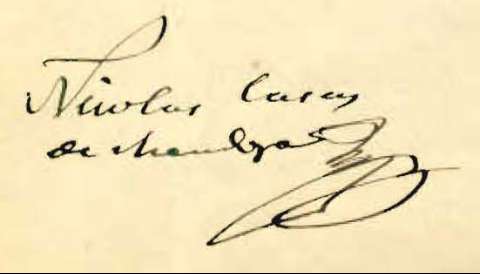 Nicolas Casas
de Mendoza